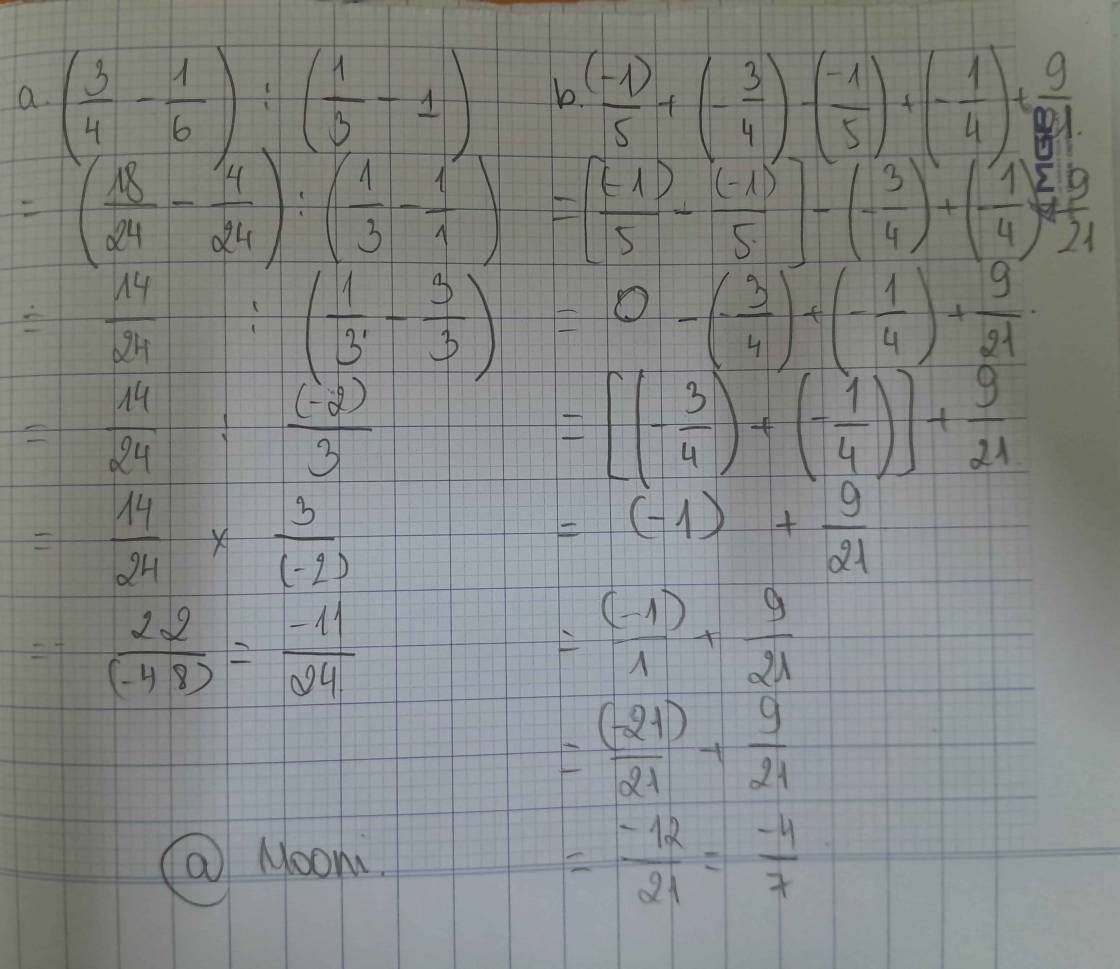 a. (3/4 - 1/6) : (1/3 - 1)
= (18/24 - 4/24) : (1/3 - 1/1)
= 14/24 : (1/3 - 3/3)
= 14/24 : (-2)/3
= 14/24 × 3/(-2)
= 22/(-48) = -11/24
@ Mooni.
b. (-1)/5 + (-3/4) - (-1/5) + (-1/4) + 9/21.
= [(-1)/5 - (-1)/5] - (-3/4) + (-1/4) + 9/21
= 0 - (-3/4) + (-1/4) + 9/21.
= [(-3/4) + (-1/4)] + 9/21
= (-1) + 9/21
= (-1)/1 + 9/21
= (-21)/21 + 9/21
= -12/21 = -4/7
MGB